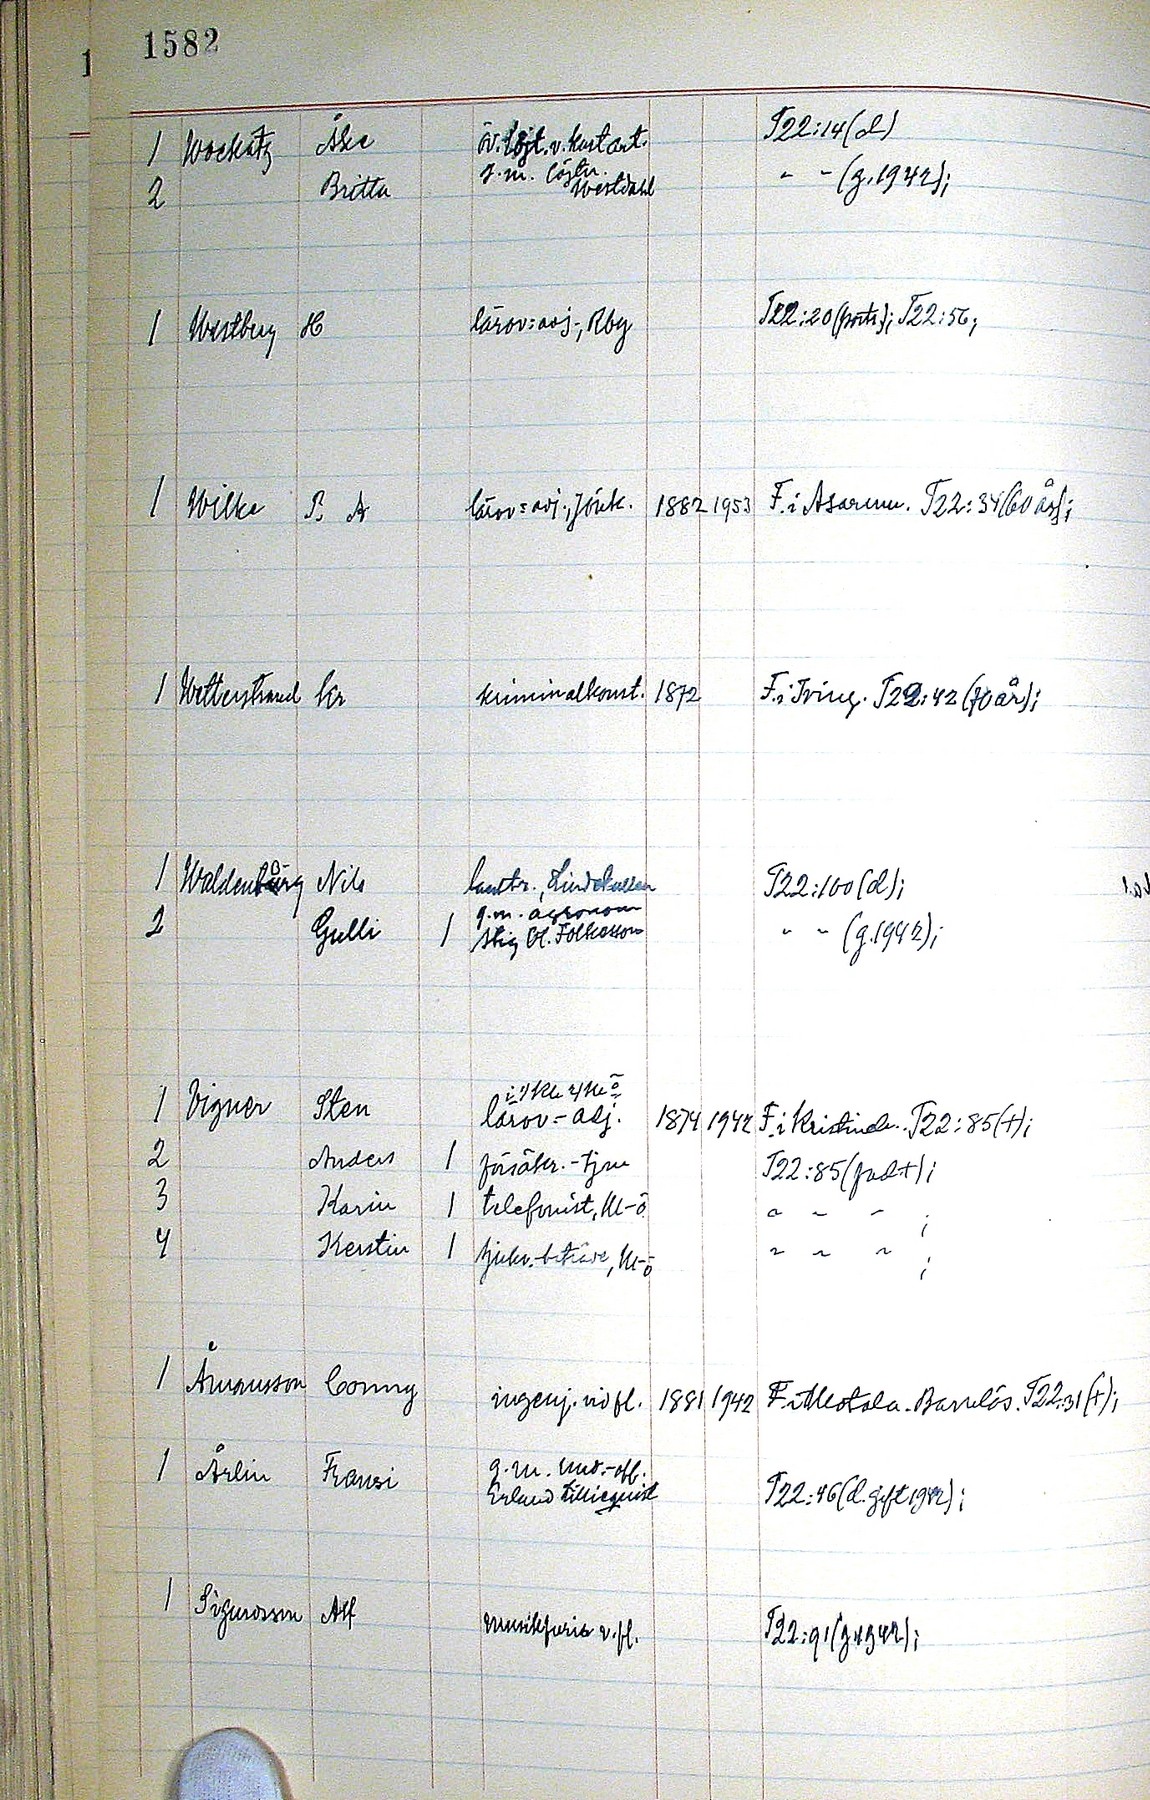 1582
1 Wockatz Åke öv.löjt. v. kustart. T22:14(d)
2 Britta g.m. löjtn. Westdahl " " (g.1942);
1 Westberg H lärov:adj., Rby T22:20(portr.); T22:56;
1 Wilke B A lärov=adj., 1882 1953 F. i Asarum. T22:34(60 år);
1 Wetterstrand Kr kriminalkonst. 1872 F. i Tving. T22:42(70 år);
1 Nils lantbr., T22:100(d);
2 Gulli 1 g.m. agronom Stig Ol. Folkesson " " (g.1942);
1 Vigner Sten lärov=adj. 1874 1942 F. i T22:85(+);
2 Anders 1 försäkr.-tjm T22:85(fad+);
3 Karin 1 telefonist, Kl-ö " " " ;
4 Kerstin 1 Kl-ö " " " ;
1 Åmansson Conny ingenj. vid fl. 1881 1942 F. i Motala. Barnlös. T22:31(+);
1 Årlin Fransi g.m. und.-off. Erland Lilliequist T22:46(d. gift 1942);
1 Sigurdsson Alf v. fl. T22:91(g 1942);